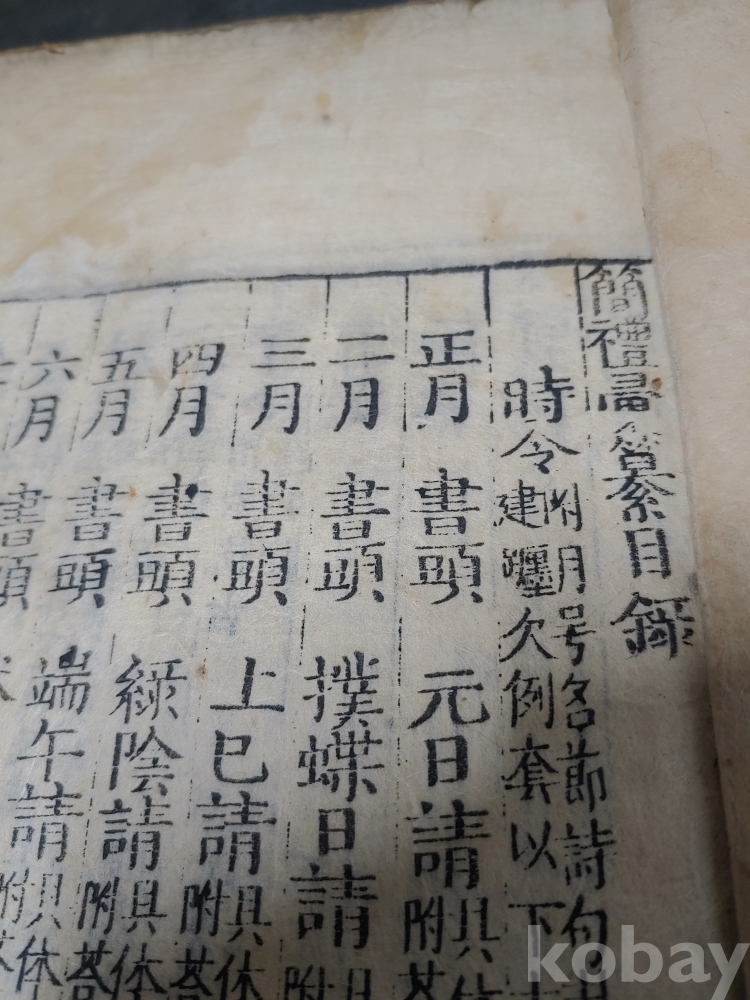 簡禮彙纂目錄
時令 附月号各節詩句
建躔欠例套以下
正月 書頭 元日請 具休
附荅
二月 書頭 撲蝶日請 具
附
三月 書頭 上巳請 具休
附荅
四月 書頭 綠陰請 具休
附荅
五月 書頭 端午請 具休
附荅
六月 書頭
kobay